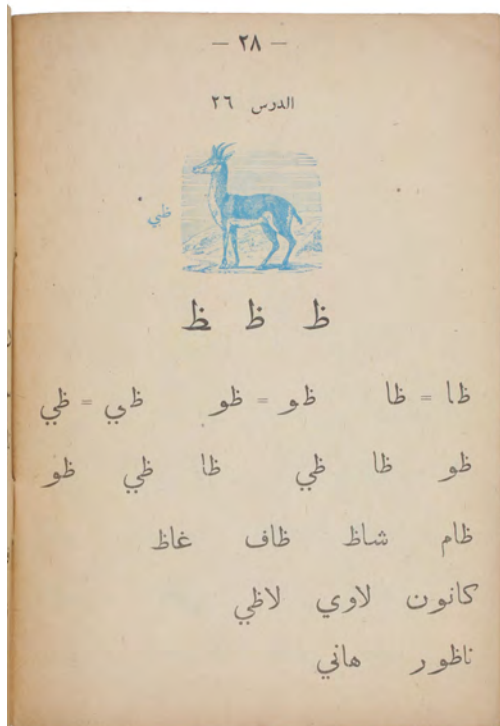 — ٢٨ —
الدرس ٢٦
ظبي
ظ ظ ظ
ظا = ظا ظو = ظو ظي = ظي
ظو ظا ظي ظا ظي ظو
ظام شاظ ظاف غاظ
كانون لاوي لاظي
ناظور هاني